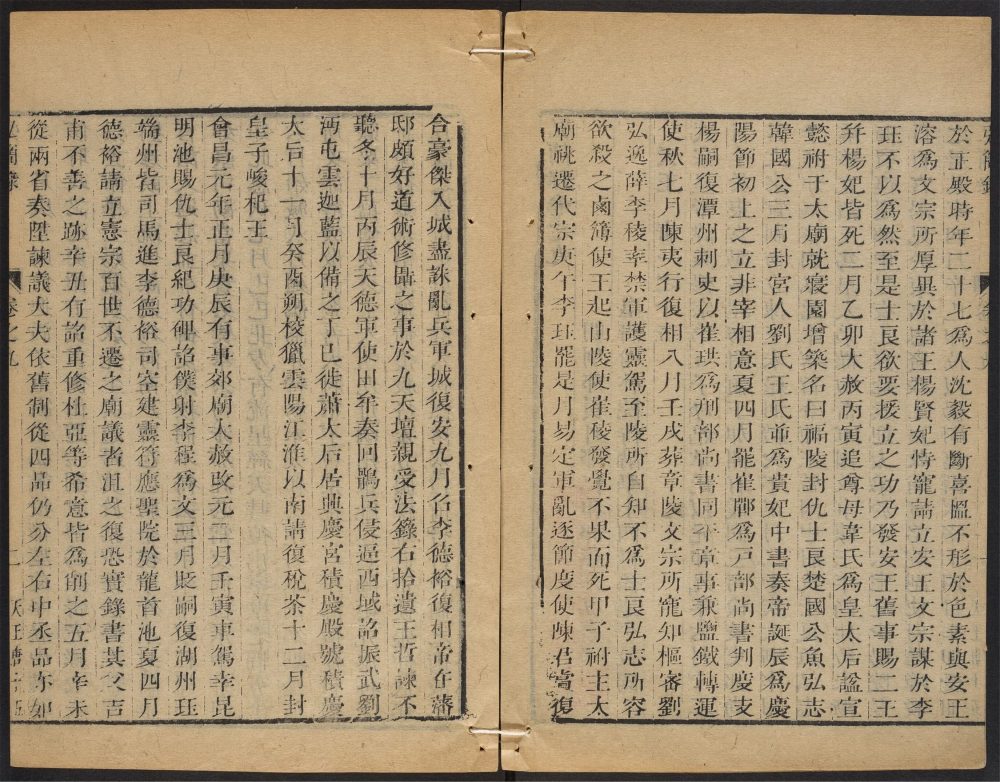 於正殿時年二十七爲人沈毅有斷喜慍不形於色素與安王
溶爲文宗所厚異於諸王楊賢妃恃寵請立安王文宗謀於李
珏不以爲然至是士良欲要援立之功乃發安王舊事賜二王
幷楊妃皆死二月乙卯大赦丙寅追尊母韋氏爲皇太后諡宣
懿祔于太廟就寢園增築名曰福陵封仇士良楚國公魚弘志
韓國公三月封宮人劉氏王氏並爲貴妃中書奏帝誕辰爲慶
陽節初上之立非宰相意夏四月罷崔鄲爲戸部尚書判度支
楊嗣復潭州刺史以崔珙爲刑部尚書同平章事兼鹽鐵轉運
使秋七月陳夷行復相八月壬戌葬章陵文宗所寵知樞密劉
弘逸薛李稜幸禁軍護靈駕至陵所自知不爲士良弘志所容
欲殺之鹵簿使王起山陵使崔稜發覺不果而死甲子祔主太
廟祧遷代宗庚午李珏罷是月易定軍亂逐節度使陳君賞復
合豪傑入城盡誅亂兵軍城復安九月召李德裕復相帝在藩
邸頗好道術修攝之事於九天壇親受法籙右拾遺王哲諫不
聽冬十月丙辰天德軍使田牟奏回鶻兵侵逼西城詔振武劉
沔屯雲迦藍以備之丁巳徙蕭太后居興慶宮積慶殿號積慶
太后十一月癸酉朔校獵雲陽江淮以南請復稅茶十二月封
皇子峻杞王
會昌元年正月庚辰有事郊廟大赦改元二月壬寅車駕幸昆
明池賜仇士良紀功碑詔僕射李程爲文三月貶嗣復湖州珏
端州皆司馬進李德裕司空建靈符應聖院於龍首池夏四月
德裕請立憲宗百世不遷之廟議者沮之復恐實錄書其父吉
甫不善之跡辛丑有詔重修杜亞等希意皆爲削之五月辛未
從兩省奏陞諫議大夫依舊制從四品仍分左右中丞品亦如
卷之九